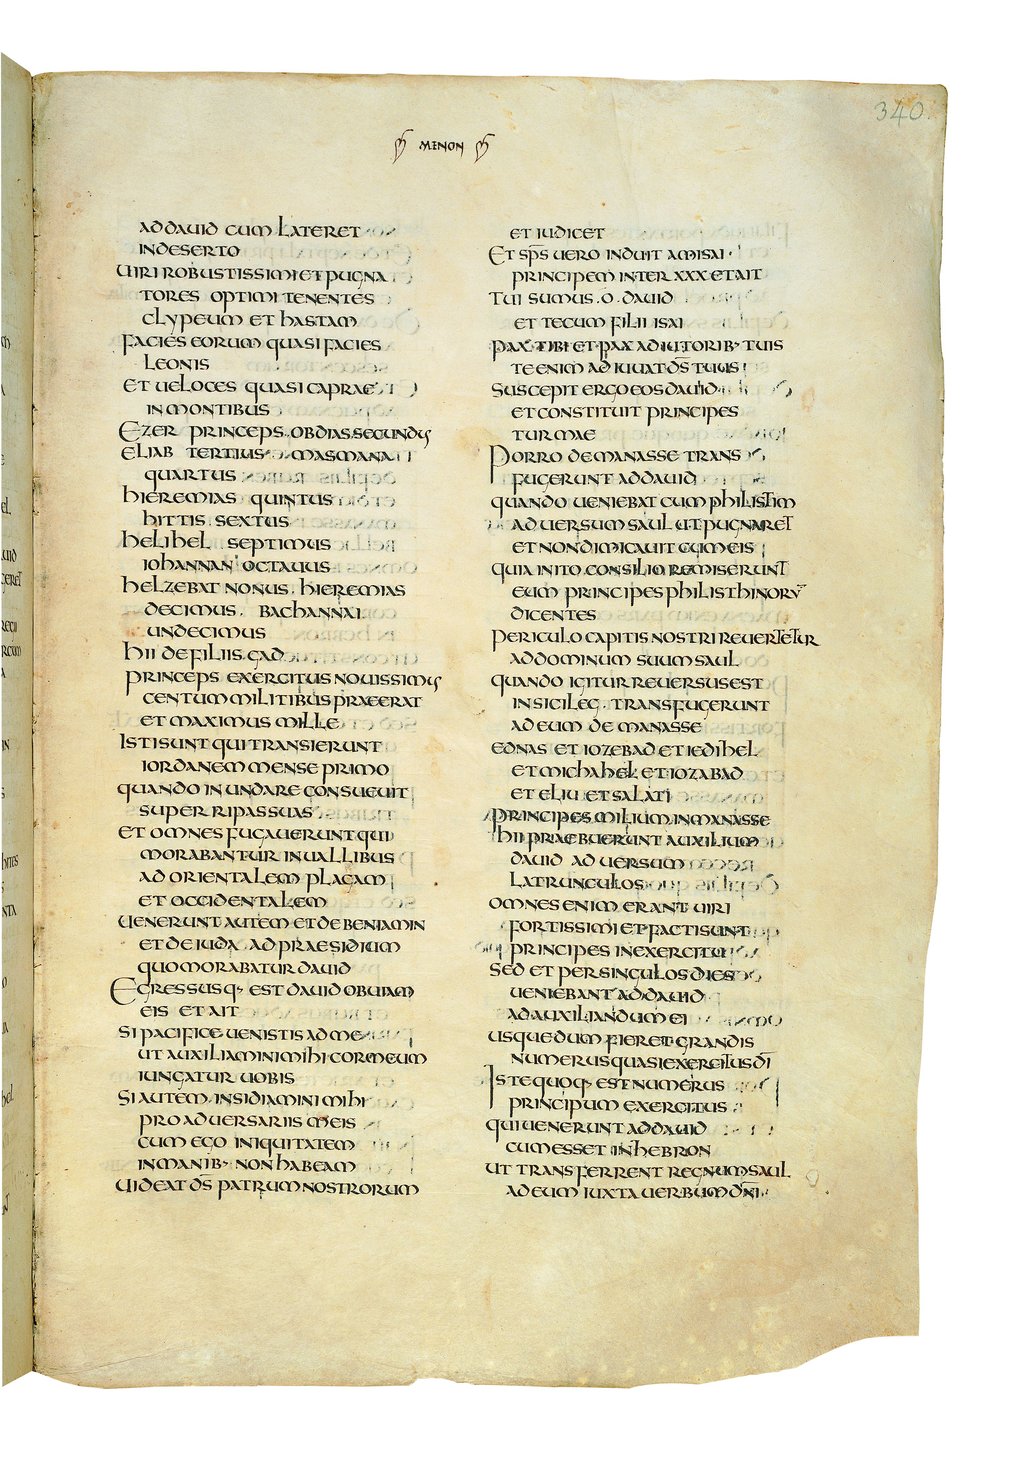 340
MENON
AD DAUID CUM LATERET
IN DESERTO
UIRI ROBUSTISSIMI ET PUGNA
TORES OPTIMI TENENTES
CLYPEUM ET HASTAM
FACIES EORUM QUASI FACIES
LEONIS
ET UELOCES QUASI CAPRAE
IN MONTIBUS
EZER PRINCEPS OBDIAS SECUNDUS
ELIAB TERTIUS MASMANA
QUARTUS
HIEREMIAS QUINTUS
HITTIS SEXTUS
HELIHEL SEPTIMUS
IOHANNAN OCTAUUS
HELZEBAT NONUS HIEREMIAS
DECIMUS BACHANNAI
UNDECIMUS
HII DE FILIIS GAD
PRINCEPS EXERCITUS NOUISSIMUS
CENTUM MILITIBUS PRAEERAT
ET MAXIMUS MILLE
ISTI SUNT QUI TRANSIERUNT
IORDANEM MENSE PRIMO
QUANDO INUNDARE CONSUEUIT
SUPER RIPAS SUAS
ET OMNES FUGAUERUNT QUI
MORABANTUR IN UALLIBUS
AD ORIENTALEM PLAGAM
ET OCCIDENTALEM
UENERUNT AUTEM ET DE BENIAMIN
ET DE IUDA AD PRAESIDIUM
QUO MORABATUR DAUID
EGRESSUSQ· EST DAUID OBUIAM
EIS ET AIT
SI PACIFICE UENISTIS AD ME
UT AUXILIAMINI MIHI COR MEUM
IUNGATUR UOBIS
SI AUTEM INSIDIAMINI MIHI
PRO ADUERSARIIS MEIS
CUM EGO INIQUITATEM
IN MANIB· NON HABEAM
UIDEAT D̅S̅ PATRUM NOSTRORUM
ET IUDICET
ET SP̅S̅ UERO INDUIT AMISAI
PRINCIPEM INTER XXX ET AIT
TUI SUMUS O DAUID
ET TECUM FILII ISAI
PAX TIBI ET PAX ADIUTORIB· TUIS
TE ENIM ADIUUAT D̅S̅ TUUS
SUSCEPIT ERGO EOS DAUID
ET CONSTITUIT PRINCIPES
TURMAE
PORRO DE MANASSE TRANS
FUGERUNT AD DAUID
QUANDO UENIEBAT CUM PHILISTIM
ADUERSUM SAUL UT PUGNARET
ET NON DIMICAUIT CUM EIS
QUIA INITO CONSILIO REMISERUNT
EUM PRINCIPES PHILISTHINORU̅
DICENTES
PERICULO CAPITIS NOSTRI REUERTETUR
AD DOMINUM SUUM SAUL
QUANDO IGITUR REUERSUS EST
IN SICILEG TRANSFUGERUNT
AD EUM DE MANASSE
EDNAS ET IOZEBAD ET IEDIHEL
ET MICHAHEL ET IOZABAD
ET ELIU ET SALATI
PRINCIPES MILIUM IN MANASSE
HII PRAEBUERUNT AUXILIUM
DAUID ADUERSUM
LATRUNCULOS
OMNES ENIM ERANT UIRI
FORTISSIMI ET FACTI SUNT
PRINCIPES IN EXERCITU
SED ET PER SINGULOS DIES
UENIEBANT AD DAUID
AD AUXILIANDUM EI
USQUE DUM FIERET GRANDIS
NUMERUS QUASI EXERCITUS D̅I̅
ISTE QUOQ· EST NUMERUS
PRINCIPUM EXERCITUS
QUI UENERUNT AD DAUID
CUM ESSET IN HEBRON
UT TRANSFERRENT REGNUM SAUL
AD EUM IUXTA UERBUM D̅N̅I̅